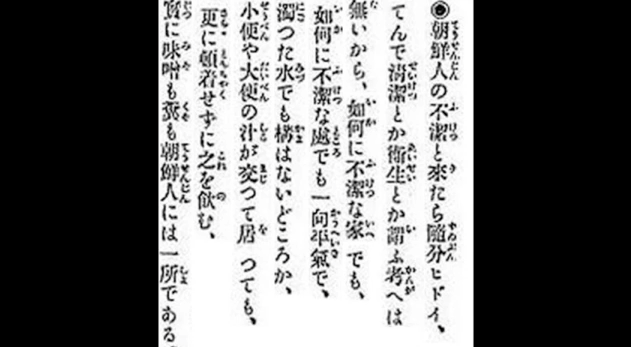 ◉朝鮮人の不潔と來たら隨分ヒドイ、
てんで清潔とか衛生とか謂ふ考へは
無いから、如何に不潔な家でも、
如何に不潔な處でも一向平氣で、
濁つた水でも構はないどころか、
小便や大便の汁が交つて居つても、
更に頓着せずに之を飮む、
實に味噌も糞も朝鮮人には一所である。